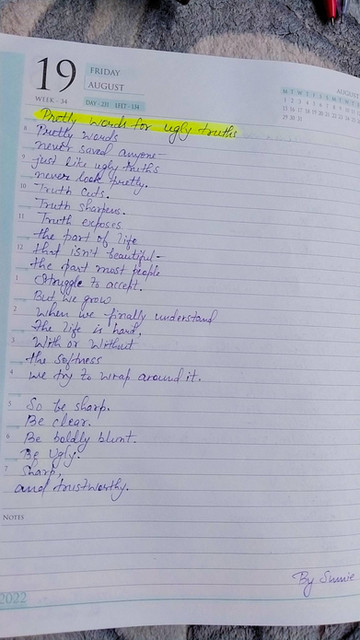 19
FRIDAY
AUGUST
WEEK - 34
DAY - 231 LEFT - 134
AUGUST
Pretty words for ugly truths
Pretty words
never saved anyone
just like ugly truths
never look pretty.
Truth cuts.
Truth sharpens.
Truth exposes
the part of life
that isn't beautiful-
the part most people
struggle to accept.
But we grow
When we finally understand
The life is hard,
With or Without
the softness
we try to wrap around it.
So be sharp.
Be clear.
Be boldly blunt.
Be Ugly.
Sharp,
and trustworthy.
NOTES
By
2022